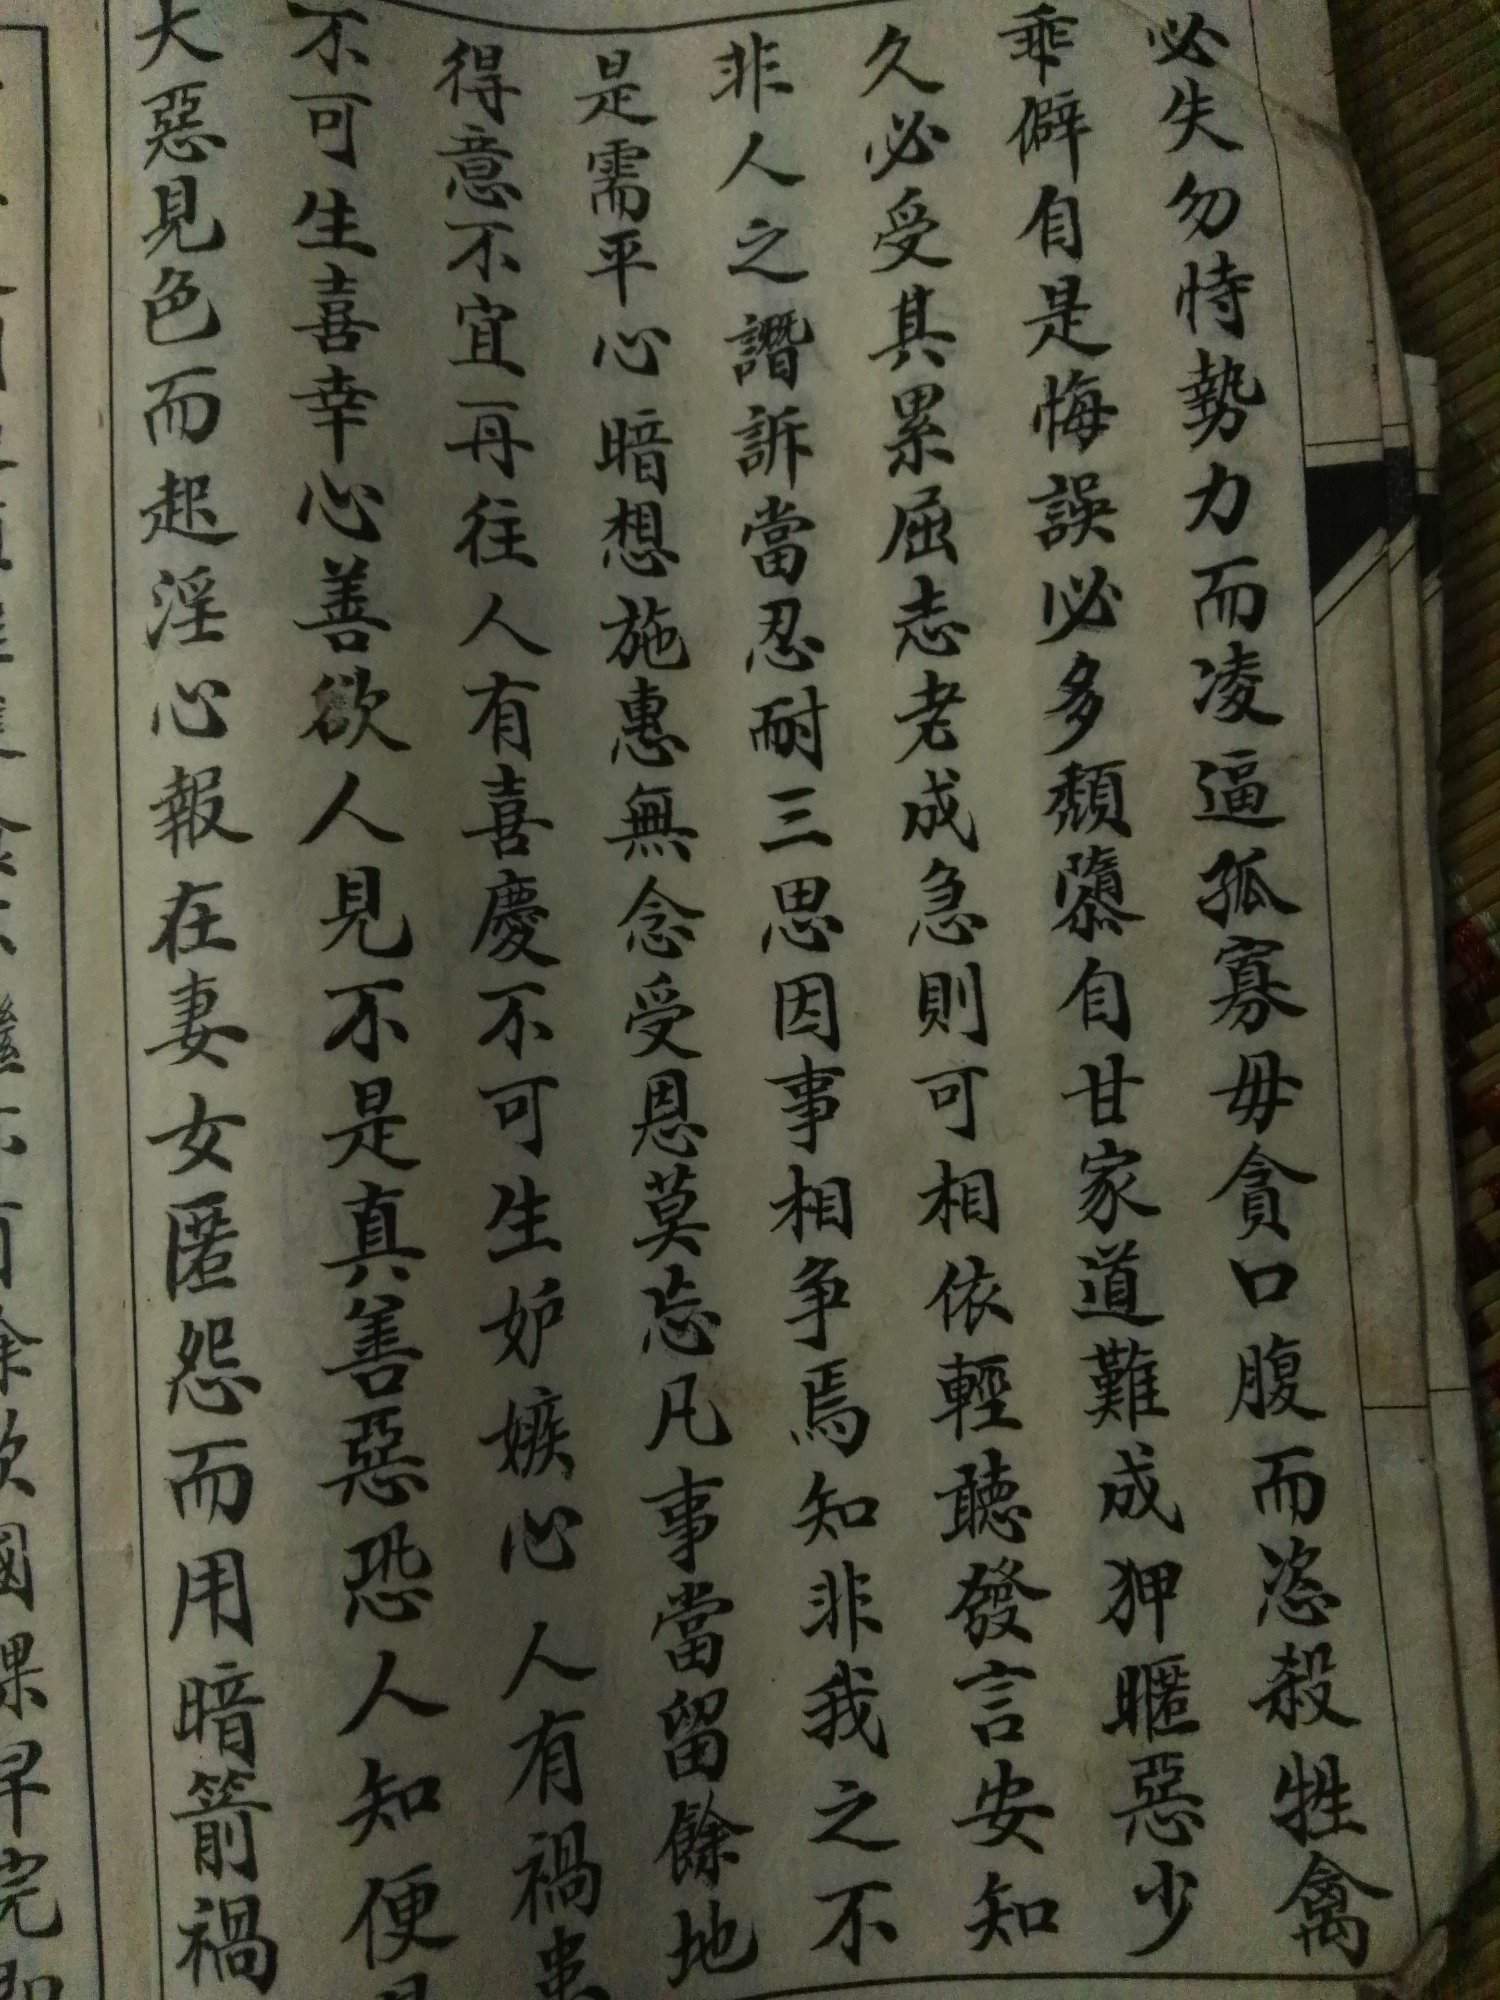 必失勿恃勢力而凌逼孤寡毋貪口腹而恣殺牲禽
乖僻自是悔誤必多頹隳自甘家道難成狎暱惡少
久必受其累屈志老成急則可相依輕聽發言安知
非人之譖訴當忍耐三思因事相争焉知非我之不
是需平心暗想施惠無念受恩莫忘凡事當留餘地
得意不宜再往人有喜慶不可生妒嫉心人有禍患
不可生喜幸心善欲人見不是真善惡恐人知便是
大惡見色而起淫心報在妻女匿怨而用暗箭禍